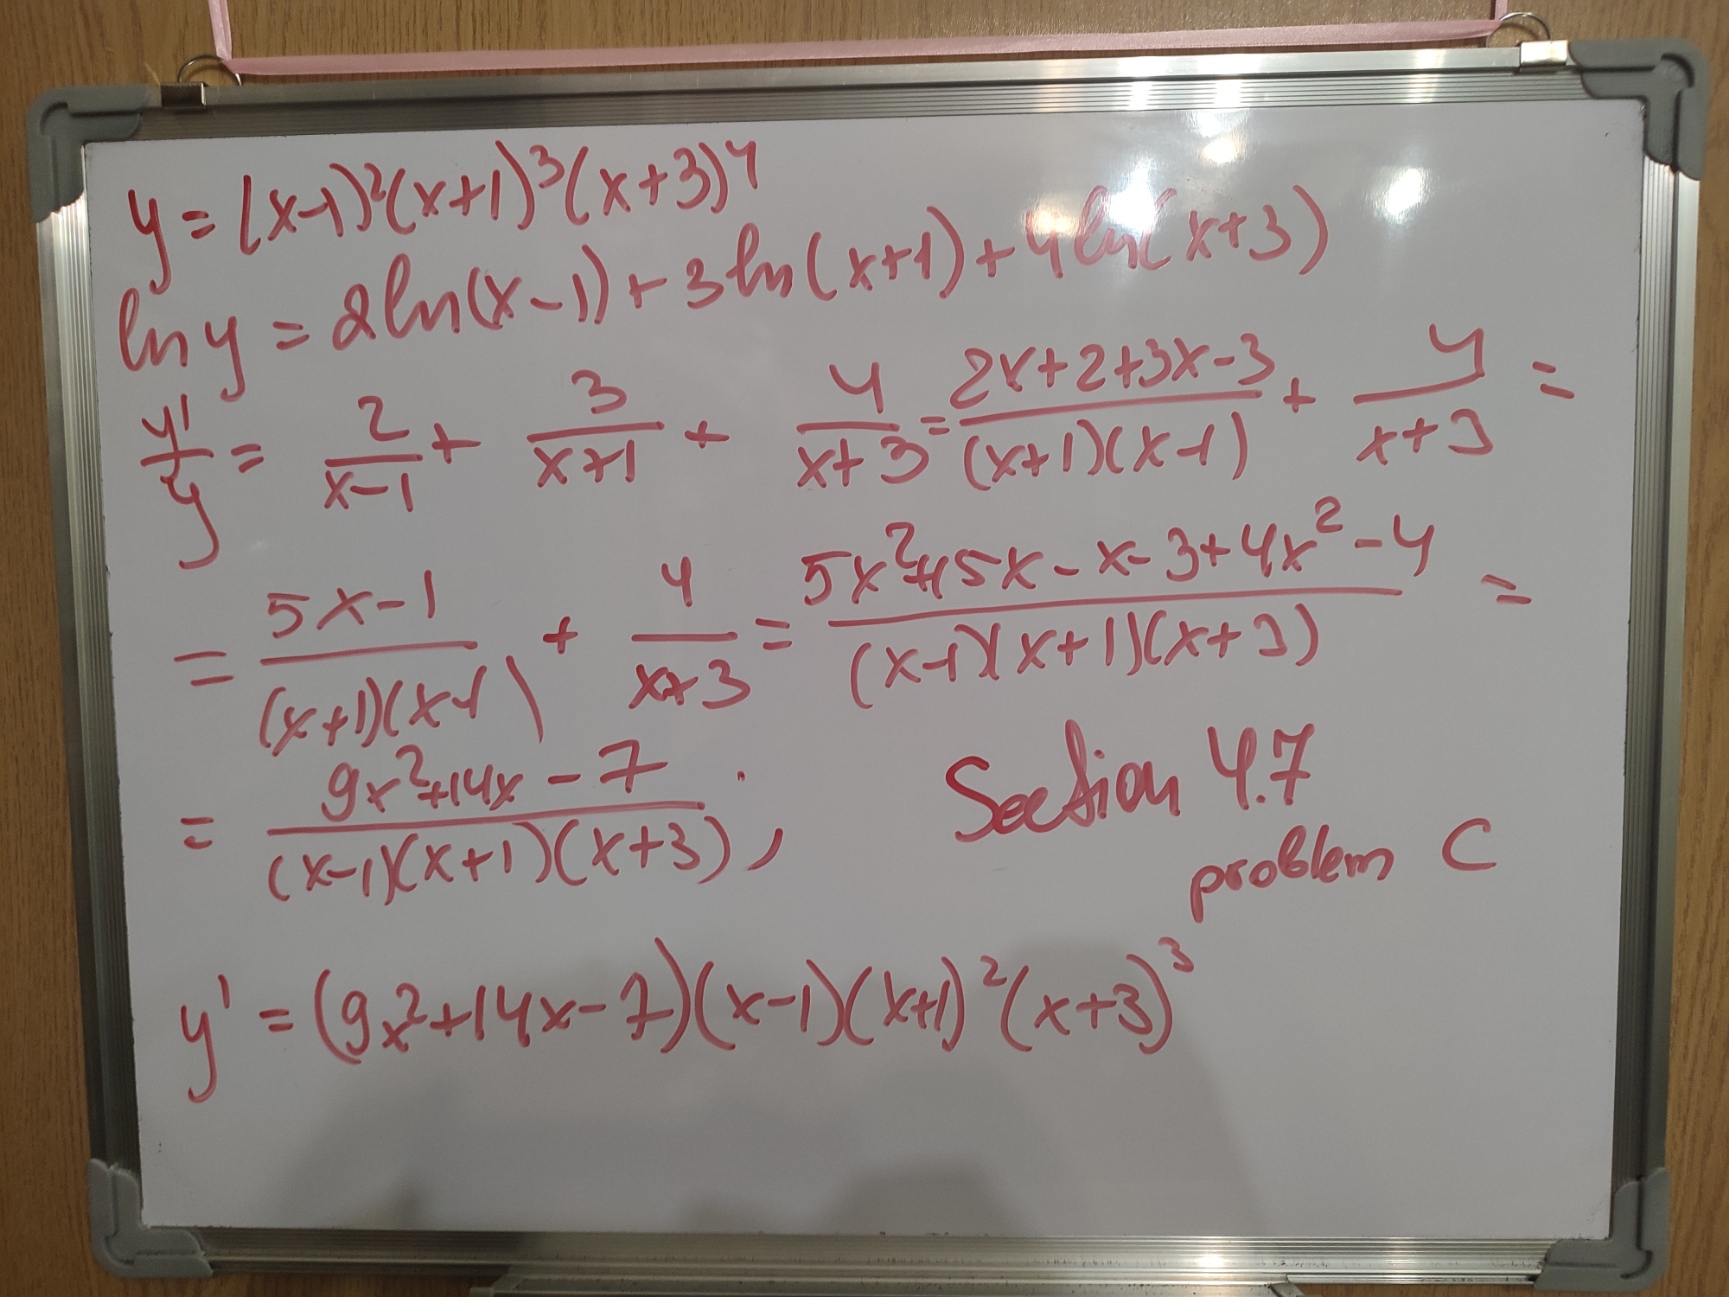 y = (x-1)²(x+1)³(x+3)⁴
ln y = 2ln(x-1) + 3ln(x+1) + 4ln(x+3)
y'/y = 2/(x-1) + 3/(x+1) + 4/(x+3) = (2x+2+3x-3)/((x+1)(x-1)) + 4/(x+3) =
= (5x-1)/((x+1)(x-1)) + 4/(x+3) = (5x²+15x-x-3+4x²-4)/((x-1)(x+1)(x+3)) =
= (9x²+14x-7)/((x-1)(x+1)(x+3));
Section 4.7
problem C
y' = (9x²+14x-7)(x-1)(x+1)²(x+3)³